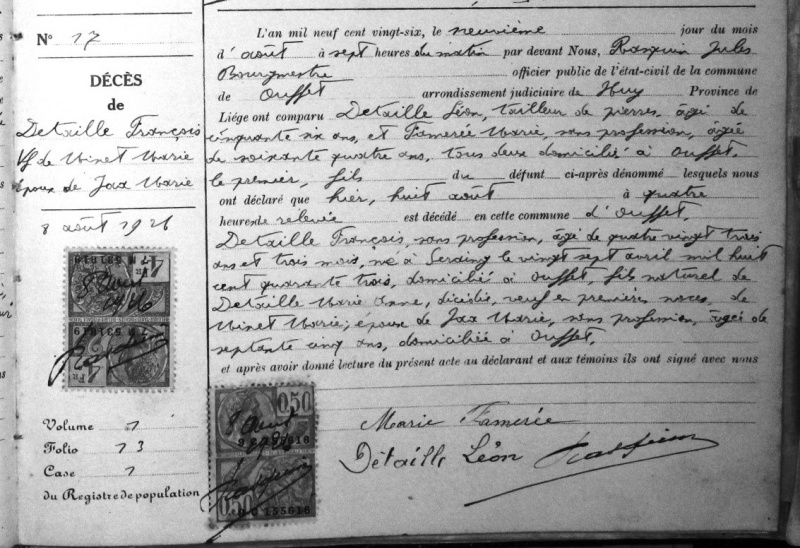 N° 17
DÉCÈS
de
Detaille François
Vf de Minet Marie
Epoux de Jax Marie
8 août 1926
8 Août
Volume 1
Folio 13
Case 1
du Registre de population
L'an mil neuf cent vingt-six, le neuvième jour du mois
d'août à sept heures du matin par devant Nous, Rasquin Jules
Bourgmestre officier public de l'état-civil de la commune
de Ouffet arrondissement judiciaire de Huy Province de
Liége ont comparu Detaille Léon, tailleur de pierres, âgé de
cinquante six ans, et Famerée Marie, sans profession, âgée
de soixante quatre ans, tous deux domiciliés à Ouffet,
le premier, fils du défunt ci-après dénommé lesquels nous
ont déclaré que hier, huit août à quatre
heures de relevée est décédé en cette commune d'Ouffet,
Detaille François, sans profession, âgé de quatre vingt trois
ans et trois mois, né à Seraing le vingt sept avril mil huit
cent quarante trois, domicilié à Ouffet, fils naturel de
Detaille Marie Anne, décédée, veuf en premières noces, de
Minet Marie; époux de Jax Marie, sans profession, âgée de
septante cinq ans, domiciliée à Ouffet.
et après avoir donné lecture du présent acte au déclarant et aux témoins ils ont signé avec nous
0,50
8 Août
0,50
Marie Famerée
Détaille Léon Rasquin